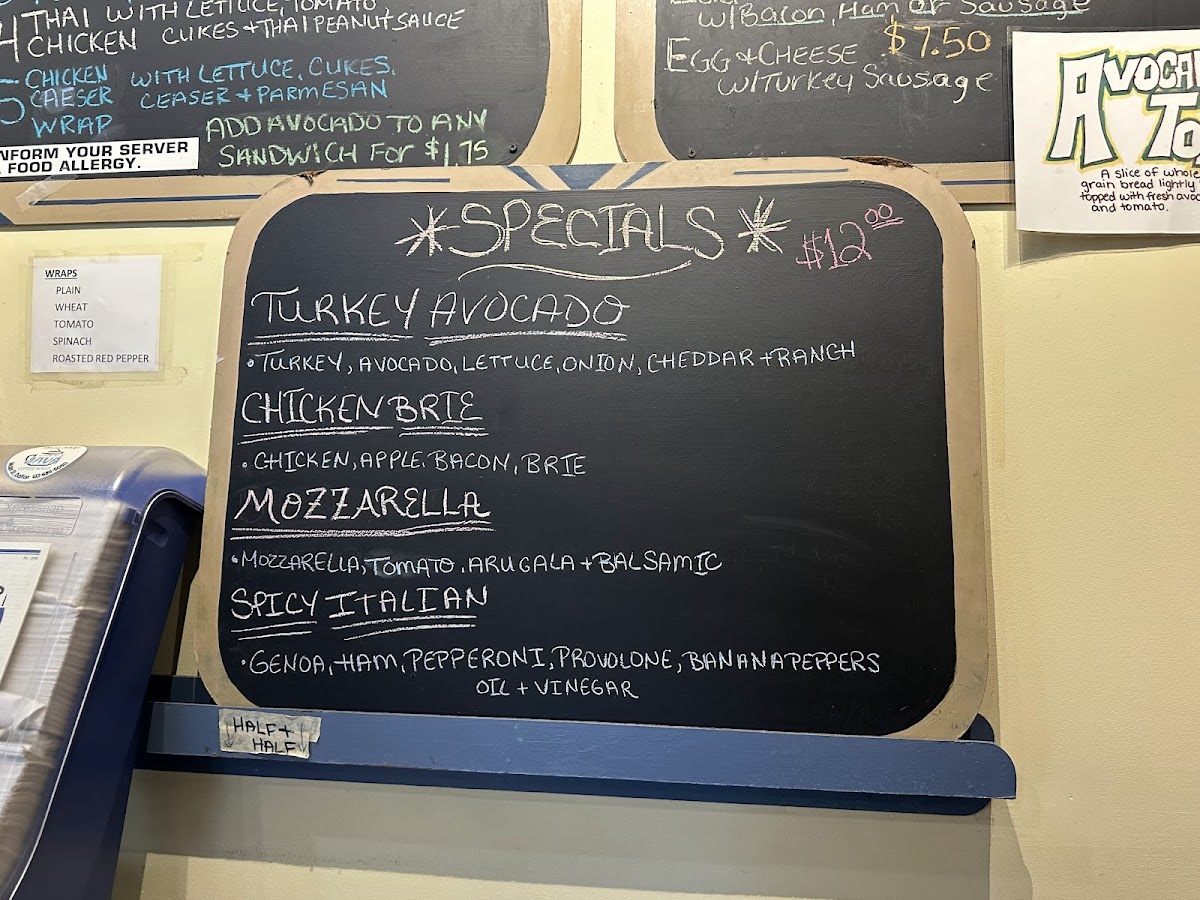 THAI WITH LETTUCE, TOMATO,
4 CHICKEN CUKES + THAI PEANUT SAUCE
5 CHICKEN WITH LETTUCE, CUKES,
CAESER CEASER + PARMESAN
WRAP
ADD AVOCADO TO ANY
SANDWICH FOR $1.75
NFORM YOUR SERVER
FOOD ALLERGY.
w/Bacon, Ham or Sausage
EGG + CHEESE $7.50
w/Turkey Sausage
AVOCA
TO
A slice of whole
grain bread lightly
topped with fresh avoc
and tomato.
WRAPS
PLAIN
WHEAT
TOMATO
SPINACH
ROASTED RED PEPPER
*SPECIALS* $12.00
TURKEY AVOCADO
•TURKEY, AVOCADO, LETTUCE, ONION, CHEDDAR + RANCH
CHICKEN BRIE
•CHICKEN, APPLE, BACON, BRIE
MOZZARELLA
•MOZZARELLA, TOMATO, ARUGALA + BALSAMIC
SPICY ITALIAN
•GENOA, HAM, PEPPERONI, PROVOLONE, BANANA PEPPERS
OIL + VINEGAR
HALF +
HALF